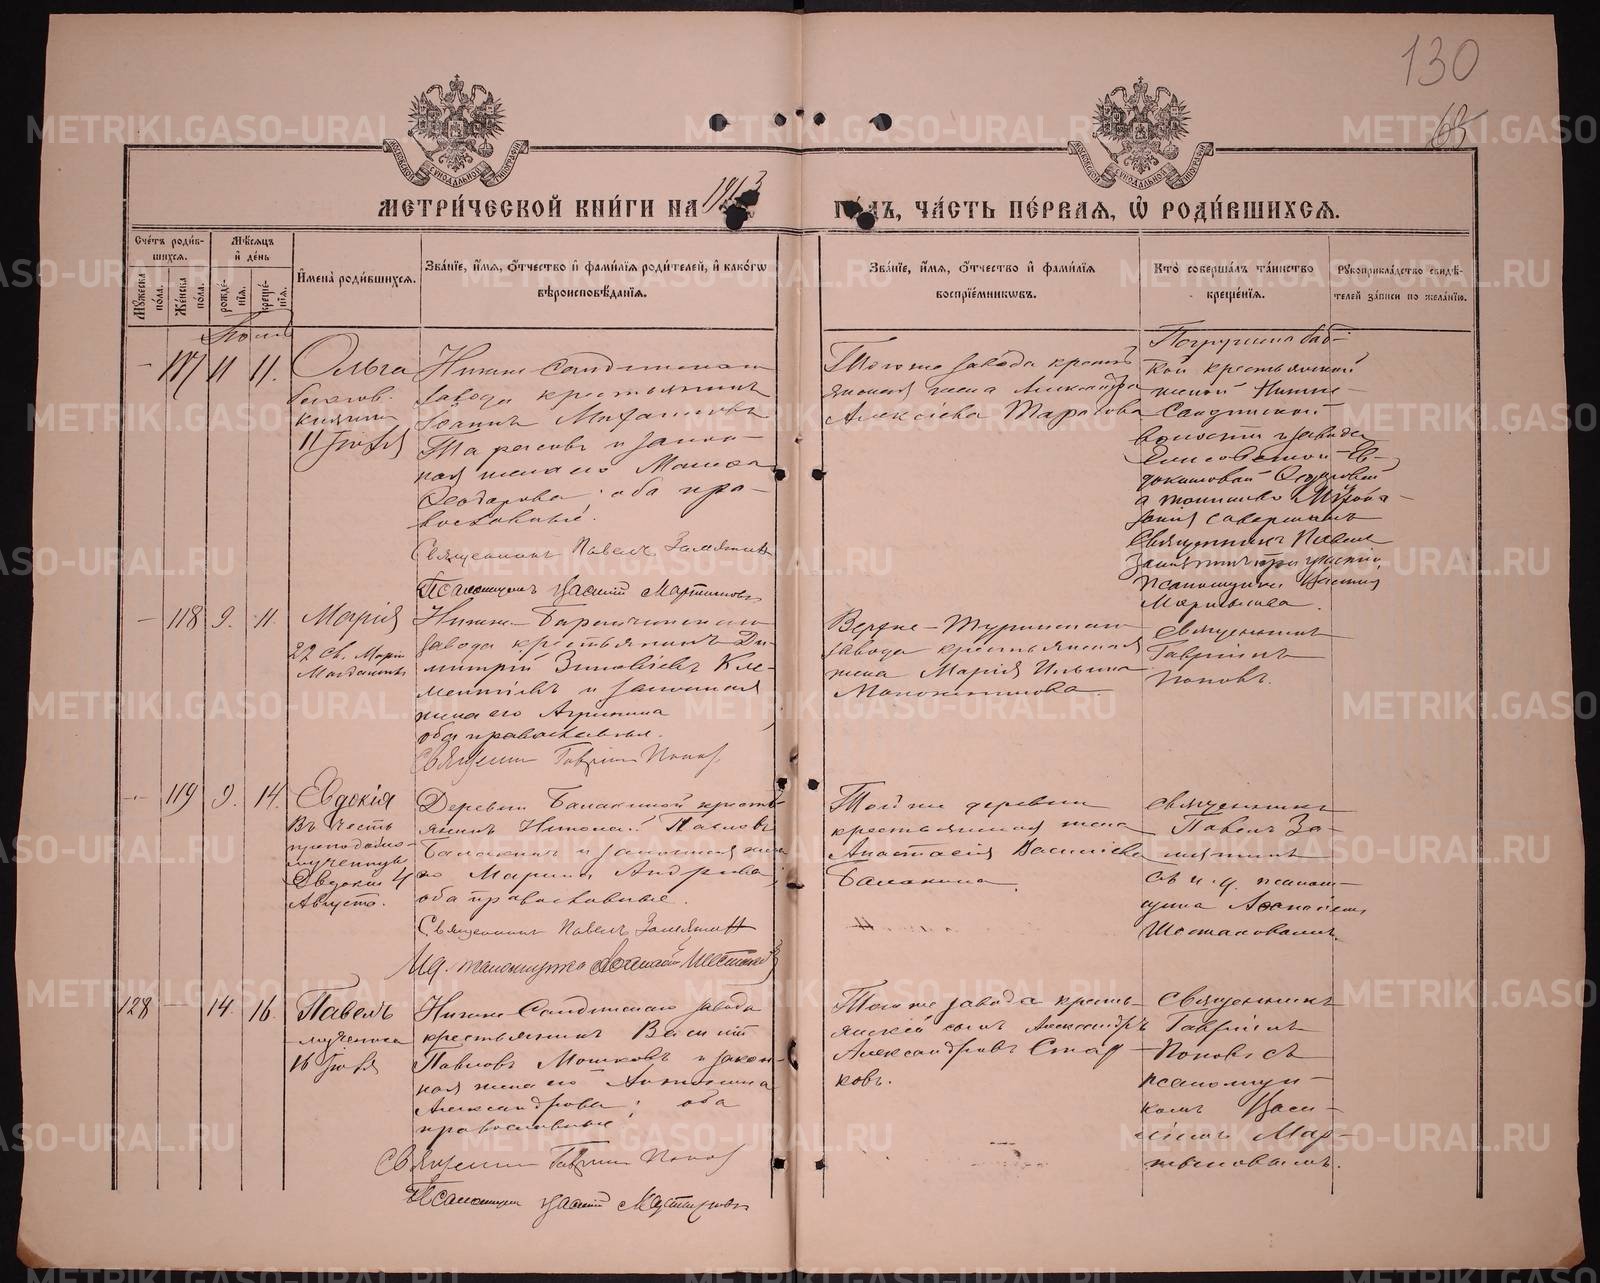 130
65
МЕТРИ́ЧЕСКОЙ КНИ́ГИ НА 1913 ГО́ДЪ, ЧА́СТЬ ПЕ́РВАЯ, Ѽ РОДИ́ВШИХСЯ.
Сче́тъ роди́вшихся.
Мꙋ́жеска пола.
Же́нска пола.
Мѣ́сяцъ и҆ де́нь
рожде́нія.
креще́нія.
И҆мена̀ роди́вшихся.
Зва́нїе, и҆́мя, ѻ҆́тчество и҆ фами́лїя роди́телей, и҆ како́гѡ
вѣроисповѣ́данїя.
Зва́нїе, и҆́мя, ѻ҆́тчество и҆ фами́лїя
воспрїе́мникѡвъ.
Кто̀ соверша́лъ та́инство
креще́нїя.
Рꙋкоприкла́дство свидѣ́-
телей за́писи по жела́нїю.
Іюль
— 117 11 11.
Ольга
княгини
11 Іюля
Нижне Салдинскаго
завода крестьянинъ
Іоаннъ Михаиловъ
Тарасовъ и закон-
ная жена его
Ѳеодорова оба пра-
вославные.
Священникъ Павелъ Замятин
Псаломщикъ Василій Мартыновъ
Тогоже завода кресть
янская жена Александра
Алексіева Тарасова
Погружена баб-
кой крестьянской
женой Нижне-
Салдинской
волости и завода
Елисаветой Ев-
докимовой
а таинство Миропома-
занія совершилъ
Священникъ Павелъ
Замятинъ при участіи
псаломщика Василія
Мартынова.
— 118 9. 11.
Марія
22 св. Маріи
Магдалины
Нижне-Баранчинскаго
завода крестьянинъ Ди-
митрій Зиновіевъ Кле-
ментіевъ и законная
жена его Агрипина
оба православныя.
Священникъ Гавріилъ Поповъ
Верхне-Туринскаго
завода крестьянская
жена Марія Ильина
Священникъ
Гавріилъ
Поповъ.
— 119 9. 14.
Евдокія
Въ честь
преподобно-
мученицы
Евдокіи 4
Августа.
Деревни Балакиной кресть-
янинъ Николай Павловъ
Балакинъ и законная жена
его Андреева
оба православные.
Священникъ Павелъ Замятин
И.д. псаломщика Аѳанасій Шестаковъ
Той же деревни
крестьянская жена
Анастасія Василіева
Балакина.
Священникъ
Павелъ За-
мятинъ
съ и. д. псалом-
щика Аѳанасіемъ
Шестаковымъ.
128 — 14. 16.
Павелъ
мученика
16 Іюля
Нижне Салдинскаго завода
крестьянинъ Василій
Павловъ Мошковъ и закон-
ная жена его Антонина
Александрова; оба
православные
Священникъ Гавріилъ Поповъ
Псаломщикъ Василій Мартыновъ
Тогоже завода кресть-
янскій сынъ Александръ
Александровъ Стар-
ковъ.
Священникъ
Гавріилъ
Поповъ съ
псаломщи-
комъ Васи-
ліемъ Мар-
тыновымъ.
METRIKI.GASO-URAL.RU